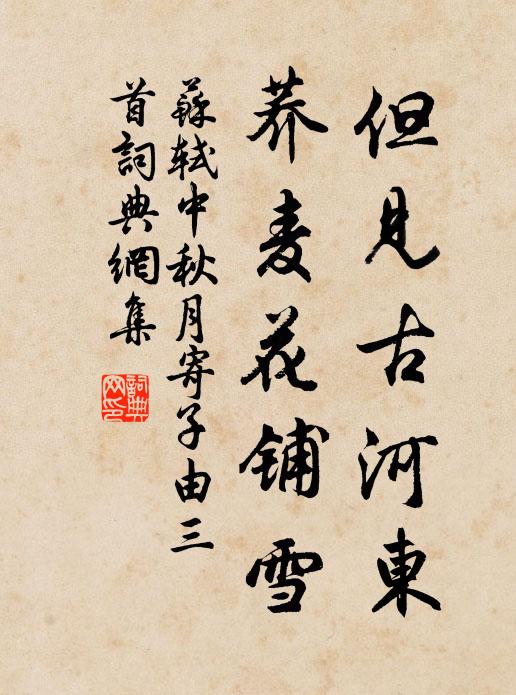 但見古河東
荞麦花铺雪
蘇軾中秋月寄子由三
首詞典網集
詞典
网印